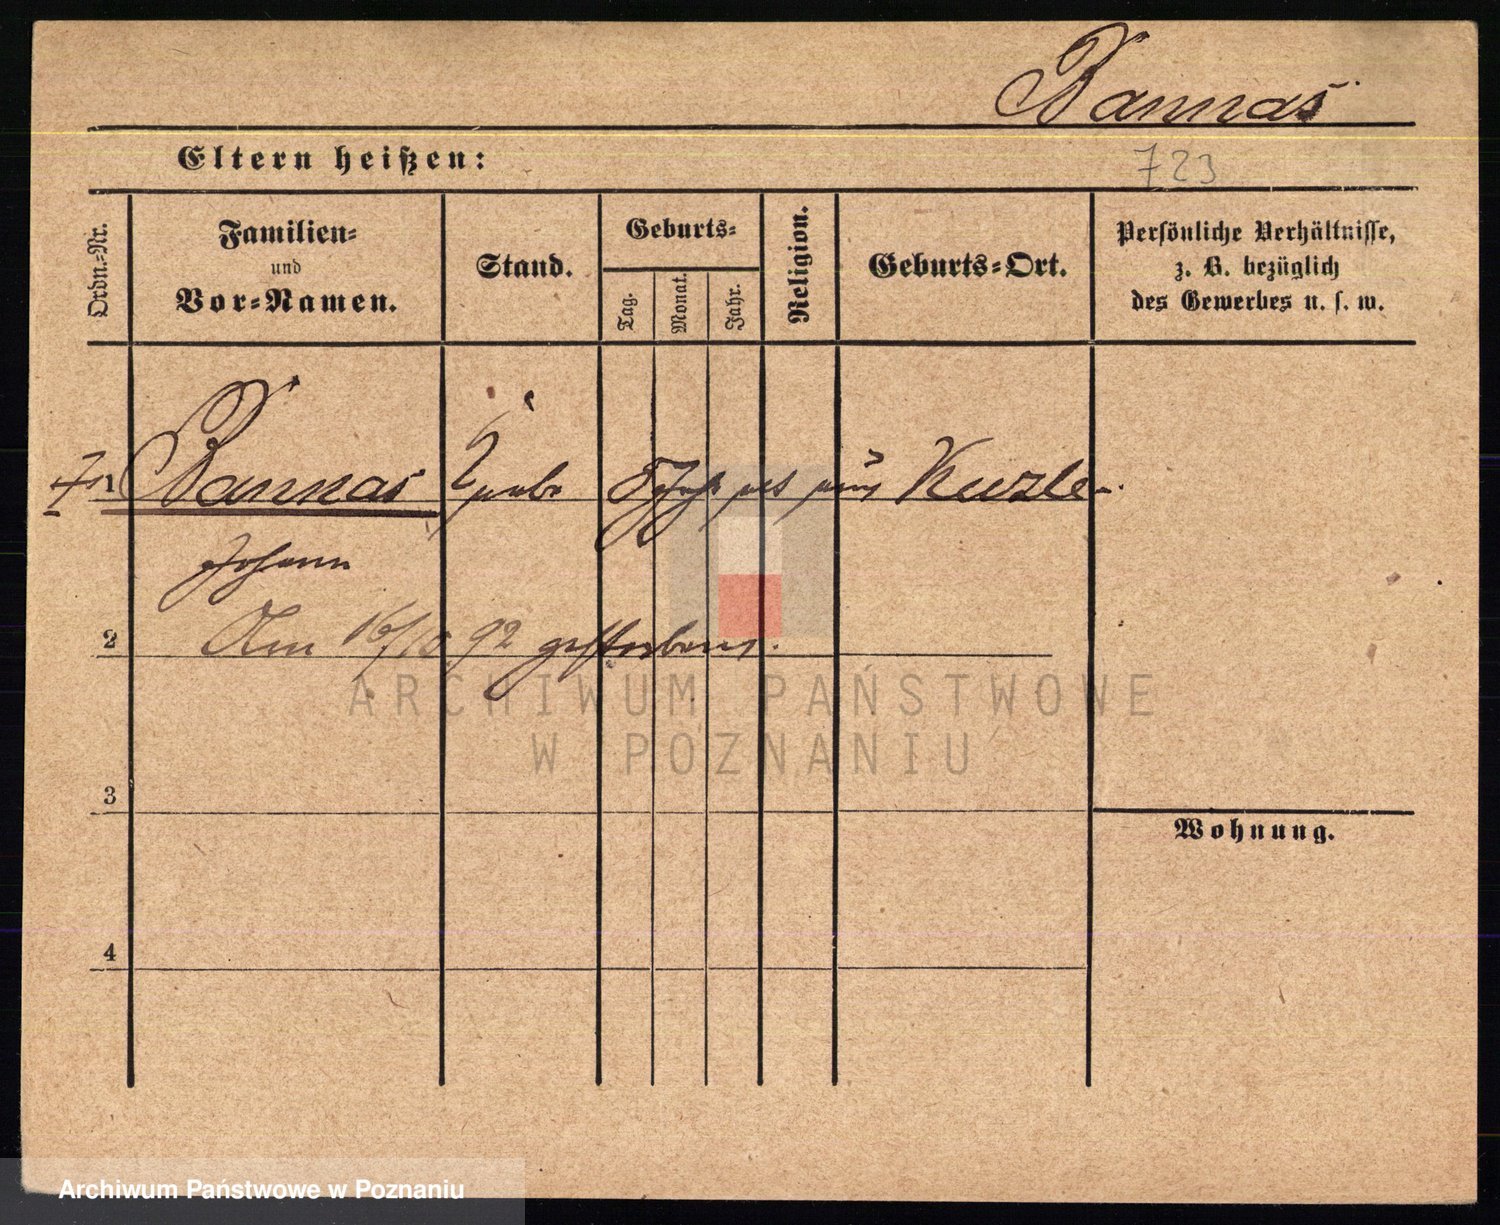 Bannas
Eltern heißen:
723
Ordn.-Nr.
Familien-
und
Vor-Namen.
Stand.
Geburts-
Tag.
Monat.
Jahr.
Religion.
Geburts-Ort.
Persönliche Verhältnisse,
z. B. bezüglich
des Gewerbes u. s. w.
1 Bannas
Johann
2 Am 16/10 92 gestorben.
ARCHIWUM PAŃSTWOWE
W POZNANIU
3
Wohnung.
4
Archiwum Państwowe w Poznaniu